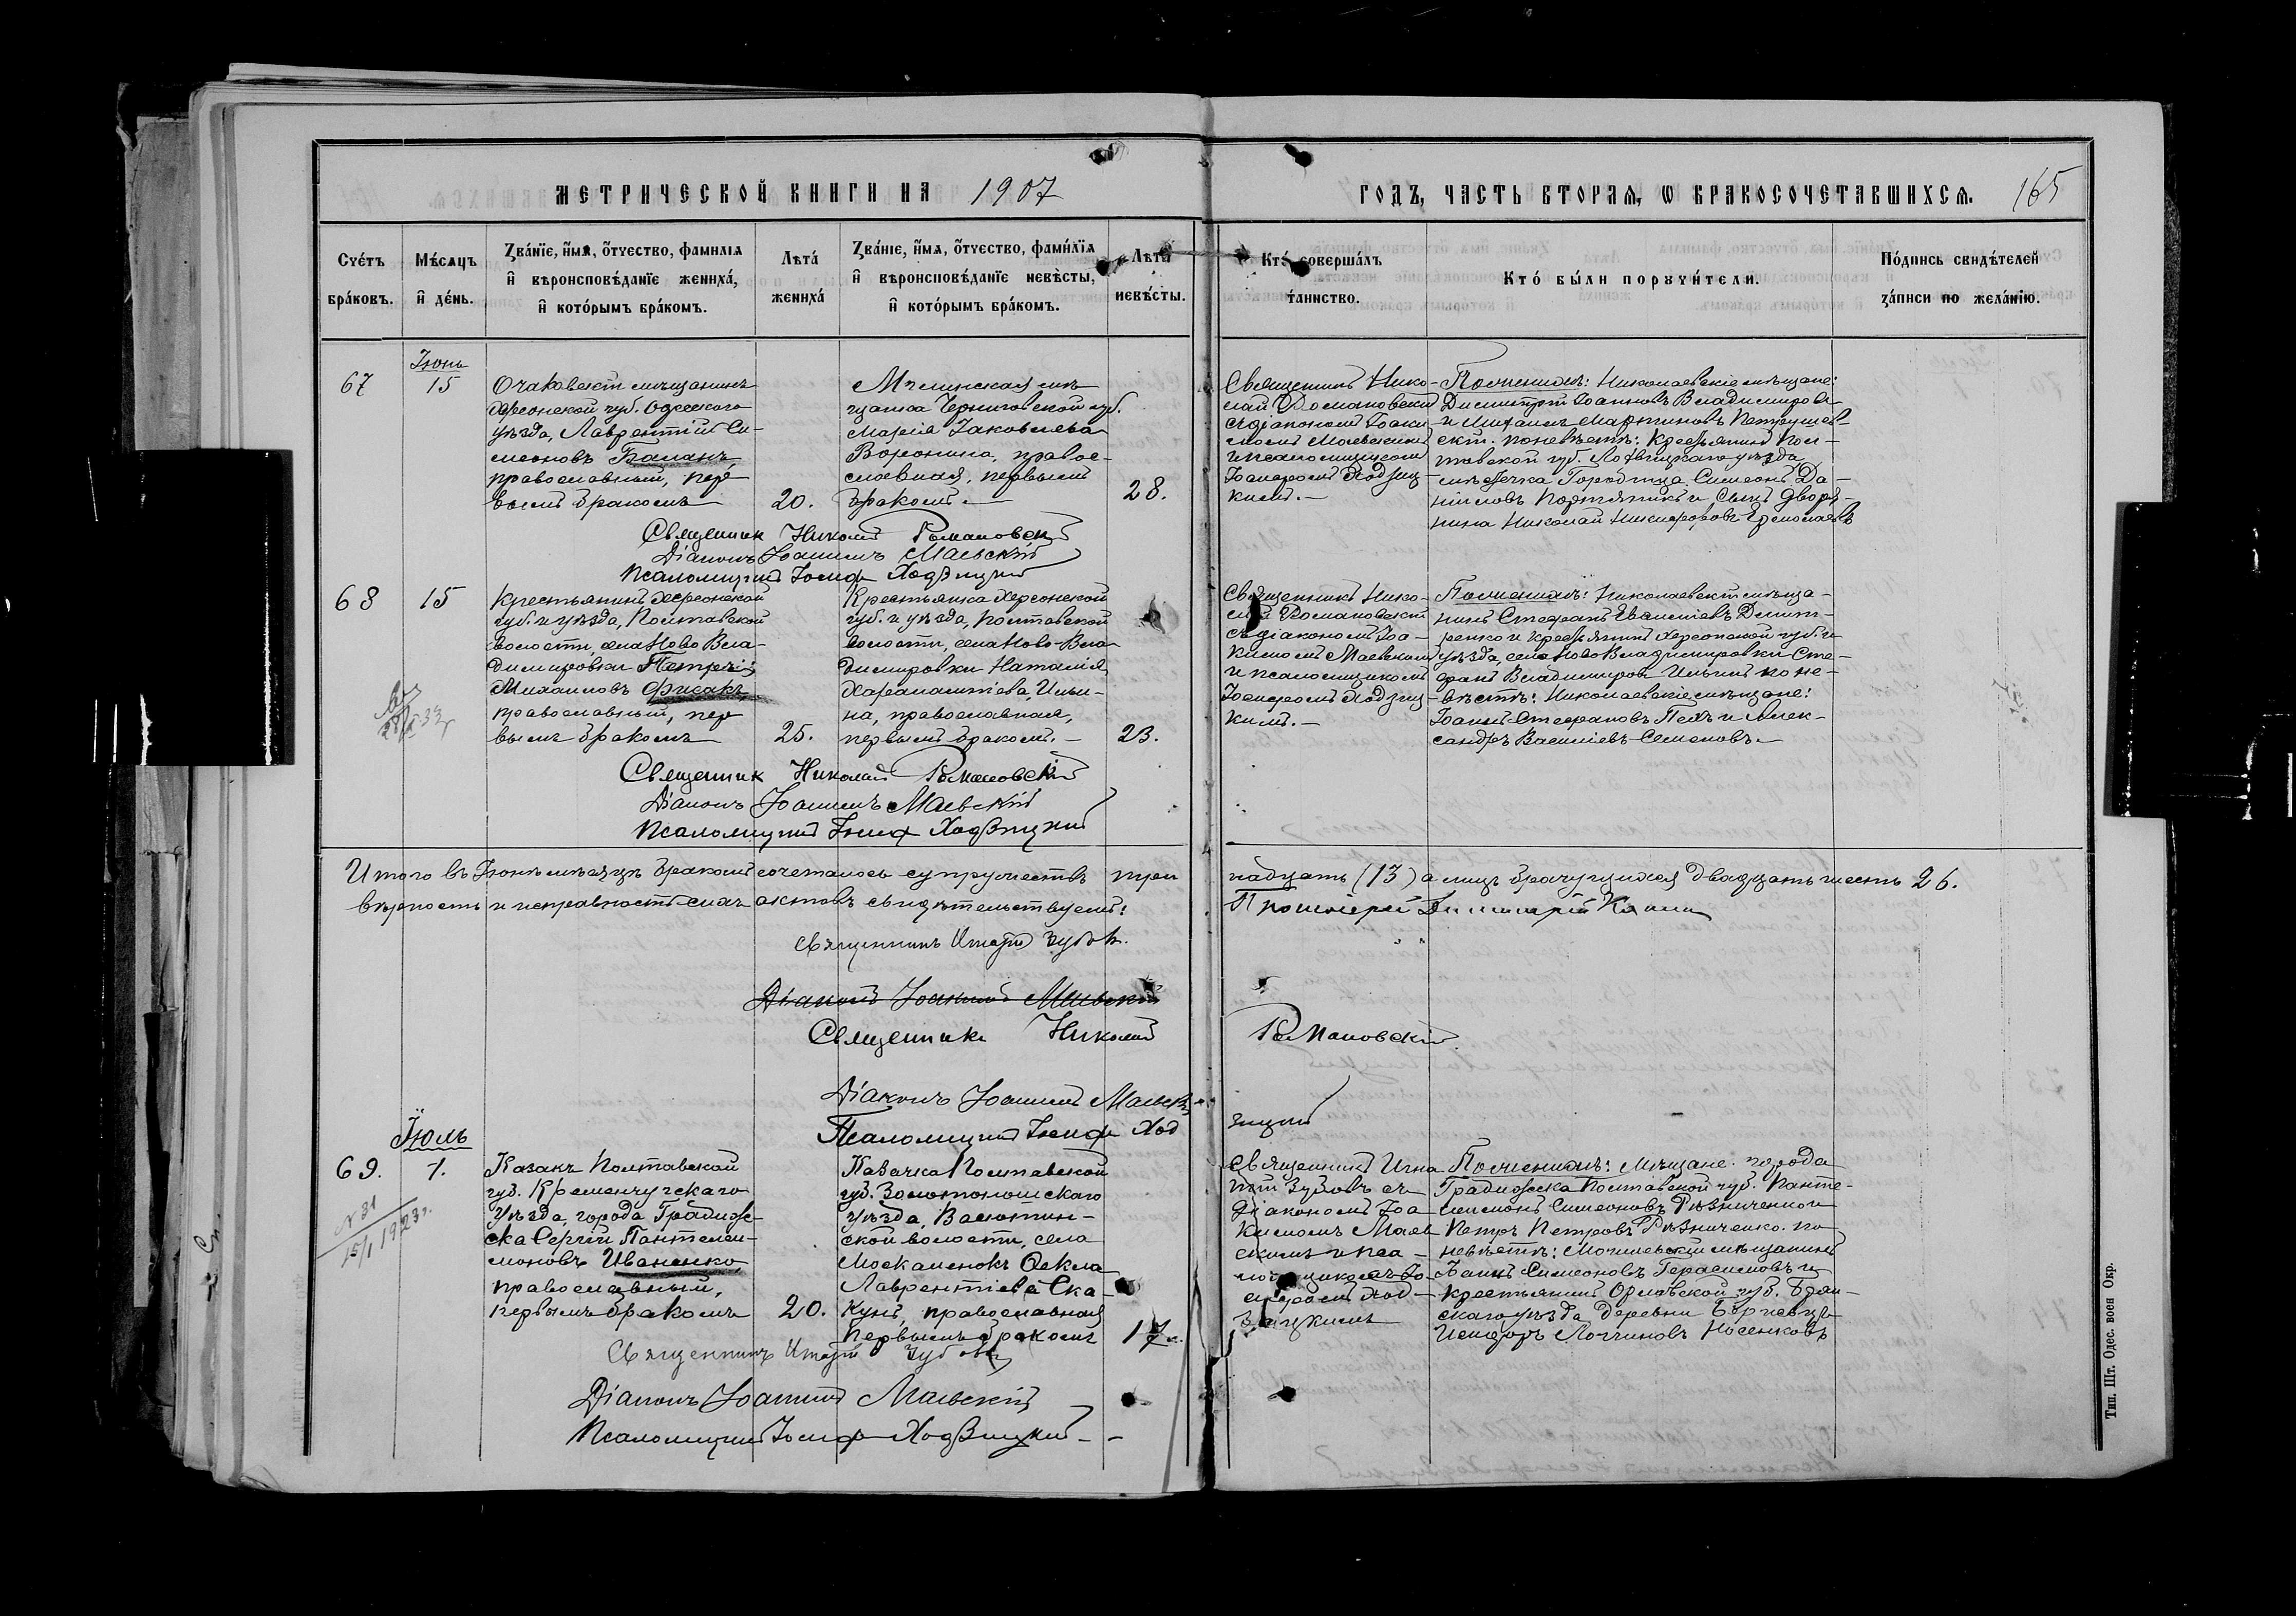 МЕТРИЧЕСКОЙ КНИГИ НА 1907
ГОДЪ, ЧАСТЬ ВТОРАЯ, Ѡ БРАКОСОЧЕТАВШИХСЯ. 165
Счетъ браковъ.
Мѣсяцъ и день.
Званіе, имя, отчество, фамилія
и вѣроисповѣданіе жениха,
и которымъ бракомъ.
Лѣта
жениха
Званіе, имя, отчество, фамилія
и вѣроисповѣданіе невѣсты,
и которымъ бракомъ.
Лѣта
невѣсты.
Кто совершалъ
таинство.
Кто были поручители.
Подпись свидѣтелей
записи по желанію.
Іюнь
67 15
Очаковскій мѣщанинъ
Херсонской губ. Одесскаго
уѣзда, Лаврентій Си-
меоновъ Баланъ
православный, пер
вымъ бракомъ 20.
Мглинская мѣ
щанка Черниговской губ.
Марія Іаковлева
Воронина, право-
славная, первымъ
бракомъ. 28.
Священникъ Нико-
лай Романовскій
съ діакономъ Іоаки-
момъ Маевскимъ
и псаломщикомъ
Іосифомъ Ходзиц-
кимъ.
По женихѣ: Николаевскіе мѣщане:
Димитрій Іоанновъ Владиміровъ
и Михаилъ Мартиновъ Петрушев-
скій. По невѣстѣ: Крестьянинъ Пол-
тавской губ. Лохвицкаго уѣзда
мѣстечка Городища Симеонъ Да-
ніиловъ и сынъ дворя-
нина Николай Никифоровъ Ермолаевъ
Священникъ Николай Романовскій
Діаконъ Іоакимъ Маевскій
Псаломщикъ Іосифъ Ходзицкій
68 15
Крестьянинъ Херсонской
губ. и уѣзда, Полтавской
волости, села Ново Вла-
димировки Петръ
Михаиловъ Фисакъ
православный, пер
вымъ бракомъ 25.
Крестьянка Херсонской
губ. и уѣзда, Полтавской
волости, села Ново-Вла-
димировки Наталія
Харалампіева Ильи-
на, православная,
первымъ бракомъ. 23.
Священникъ Нико-
лай Романовскій
съ діакономъ Іоа-
кимомъ Маевскимъ
и псаломщикомъ
Іосифомъ Ходзиц-
кимъ.
По женихѣ: Николаевскій мѣща-
нинъ Стефанъ Дмит-
ренко и крестьянинъ Херсонской губ. и
уѣзда, села Ново Владимировки Сте-
фанъ Владиміровъ Ильинъ по не-
вѣстѣ: Николаевскіе мѣщане:
Іоаннъ Стефановъ и Алек-
сандръ Василіевъ Семеновъ
Священникъ Николай Романовскій
Діаконъ Іоакимъ Маевскій
Псаломщикъ Іосифъ Ходзицкій
Итого въ Іюнѣ мѣсяцѣ бракомъ сочеталось супружествъ три надцать (13) а лицъ брачущихся двадцать шесть 26.
вѣрность и исправность актовъ свидѣтельствуемъ: Протоіерей Димитрій
Священникъ Игнатій Зубовъ.
Діаконъ Іоакимъ Маевскій
Священникъ Николай Романовскій
Діаконъ Іоакимъ Маевск
Псаломщикъ Іосифъ Ход зицкій
Іюль
69. 1.
№ 31
15/I 1923 г.
Казакъ Полтавской
губ. Кременчугскаго
уѣзда, города Градиж
ска Сергій Пантелеи-
моновъ Иваненко,
православный,
первымъ бракомъ 20.
Казачка Полтавской
губ. Золотоношскаго
уѣзда,
ской волости, села
Москаленокъ Ѳекла
Лаврентіева Ска-
кунъ, православная
первымъ бракомъ 17.
Священникъ Игна
тій Зубовъ съ
діакономъ Іоа
кимомъ Маев
скимъ и пса-
ломщикомъ Іо-
сифомъ Ход-
зицкимъ
По женихѣ: Мѣщане города
Градижска Полтавской губ. Панте-
леимонъ Симеоновъ Рѣзниченко и
Петръ Петровъ Рѣзниченко. по
невѣстѣ: Могилевскій мѣщанинъ
Іоаннъ Симеоновъ Герасимовъ и
крестьянинъ Орловской губ. Брян-
скаго уѣзда деревни
Исидоръ Логгиновъ Носенковъ
Священникъ Игнатій Зубовъ
Діаконъ Іоакимъ Маевскій
Псаломщикъ Іосифъ Ходзицкій
Тип. Шт. Одес. воен Окр.